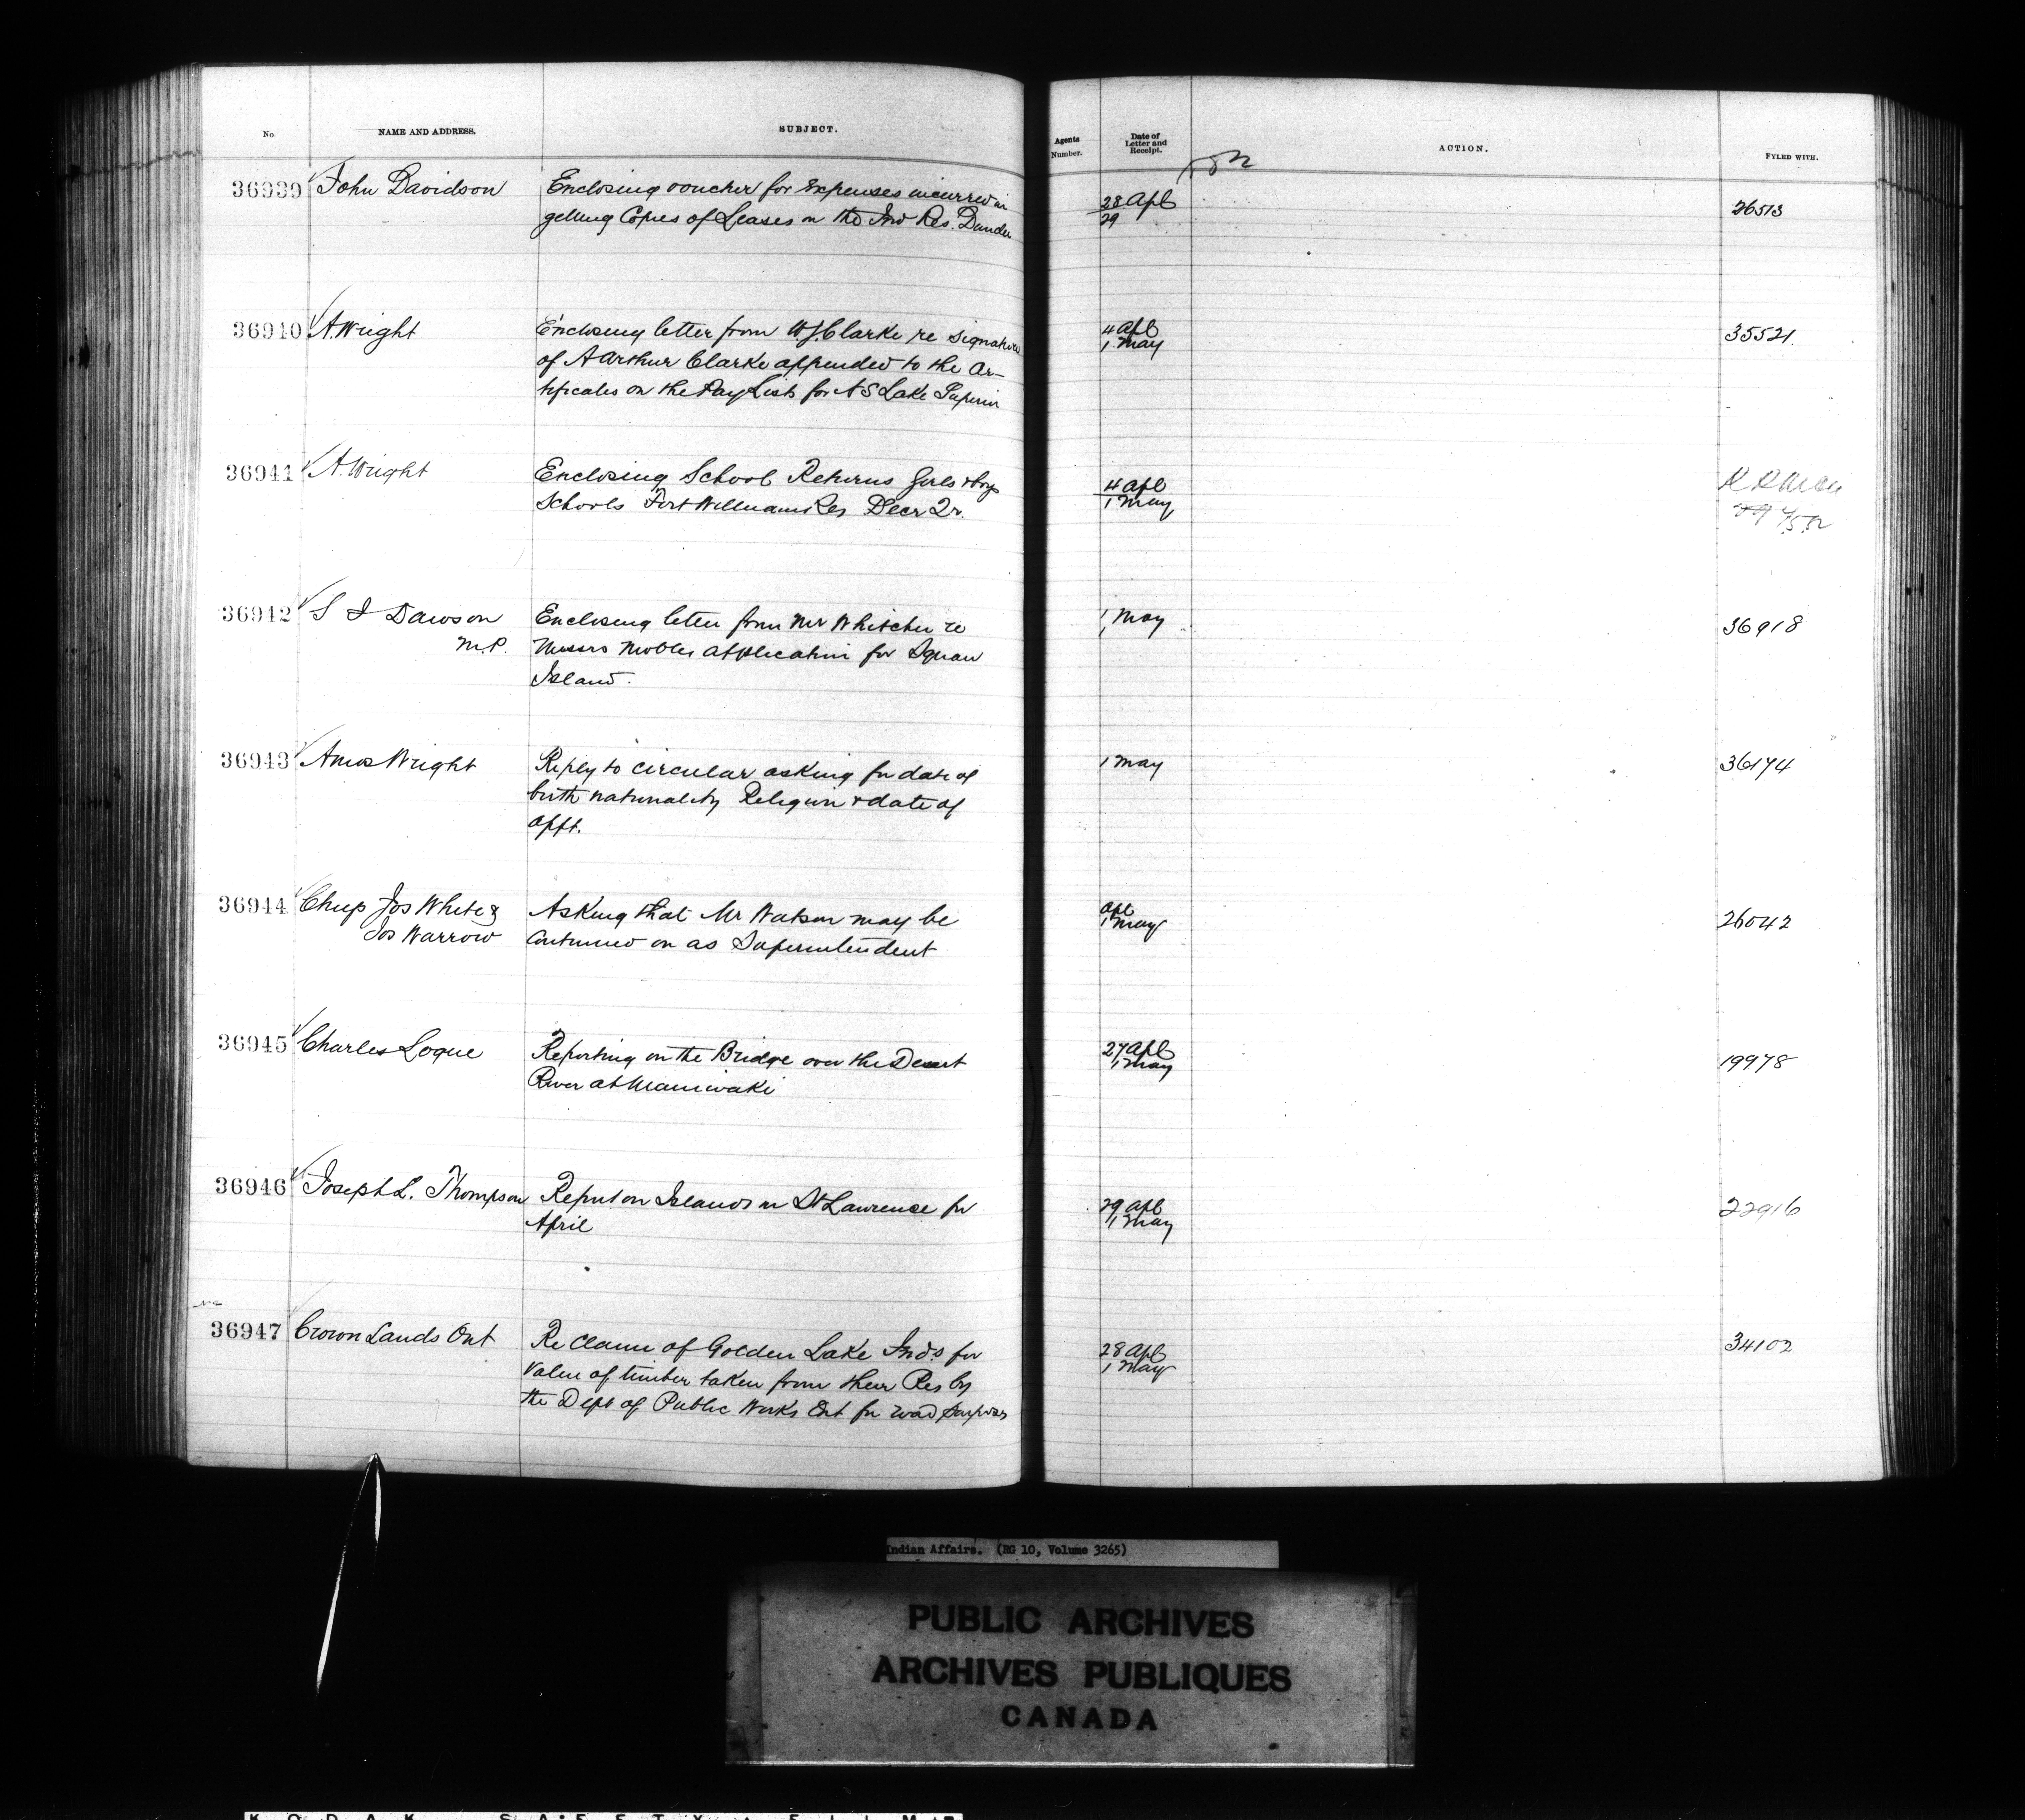 No. NAME AND ADDRESS. SUBJECT. Agents Number. Date of Letter and Receipt. ACTION. FYLED WITH.
36939 John Davidson Enclosing voucher for Expenses incurred in 28 Apl 26513
getting Copies of Leases on the Ind Res. Dundee 29
36940 A. Wright Enclosing letter from W.J. Clarke re signature 4 Apl 35521.
of A Arthur Clarke appended to the Cer- 1 May
tificates on the Pay Lists for N S Lake Superior
36941 A. Wright Enclosing School Returns Girls & boys 4 Apl
Schools Fort William Res Decr Qr. 1 May
36942 S J Dawson Enclosing letter from Mr Whitcher re 1 May 36918
M.P. Messrs Nobles application for Squaw
Island.
36943 Amos Wright Reply to circular asking for date of 1 May 36174
birth nationality Religion & date of
appt.
36944 Chief Jos White & Asking that Mr Watson may be Apl 26042
Jos Warrow continued on as Superintendent 1 May
36945 Charles Logue Reporting on the Bridge over the Desert 27 Apl 19978
River at Maniwaki 1 May
36946 Joseph L. Thompson Report on Islands in St Lawrence for 29 Apl 22916
April 1 May
36947 Crown Lands Ont Re Claim of Golden Lake Inds. for 28 Apl 34102
value of timber taken from their Res by 1 May
the Dept of Public Works Ont for road purposes
Indian Affairs. (RG 10, Volume 3265)
PUBLIC ARCHIVES
ARCHIVES PUBLIQUES
CANADA
KODAK SAFETY FILM